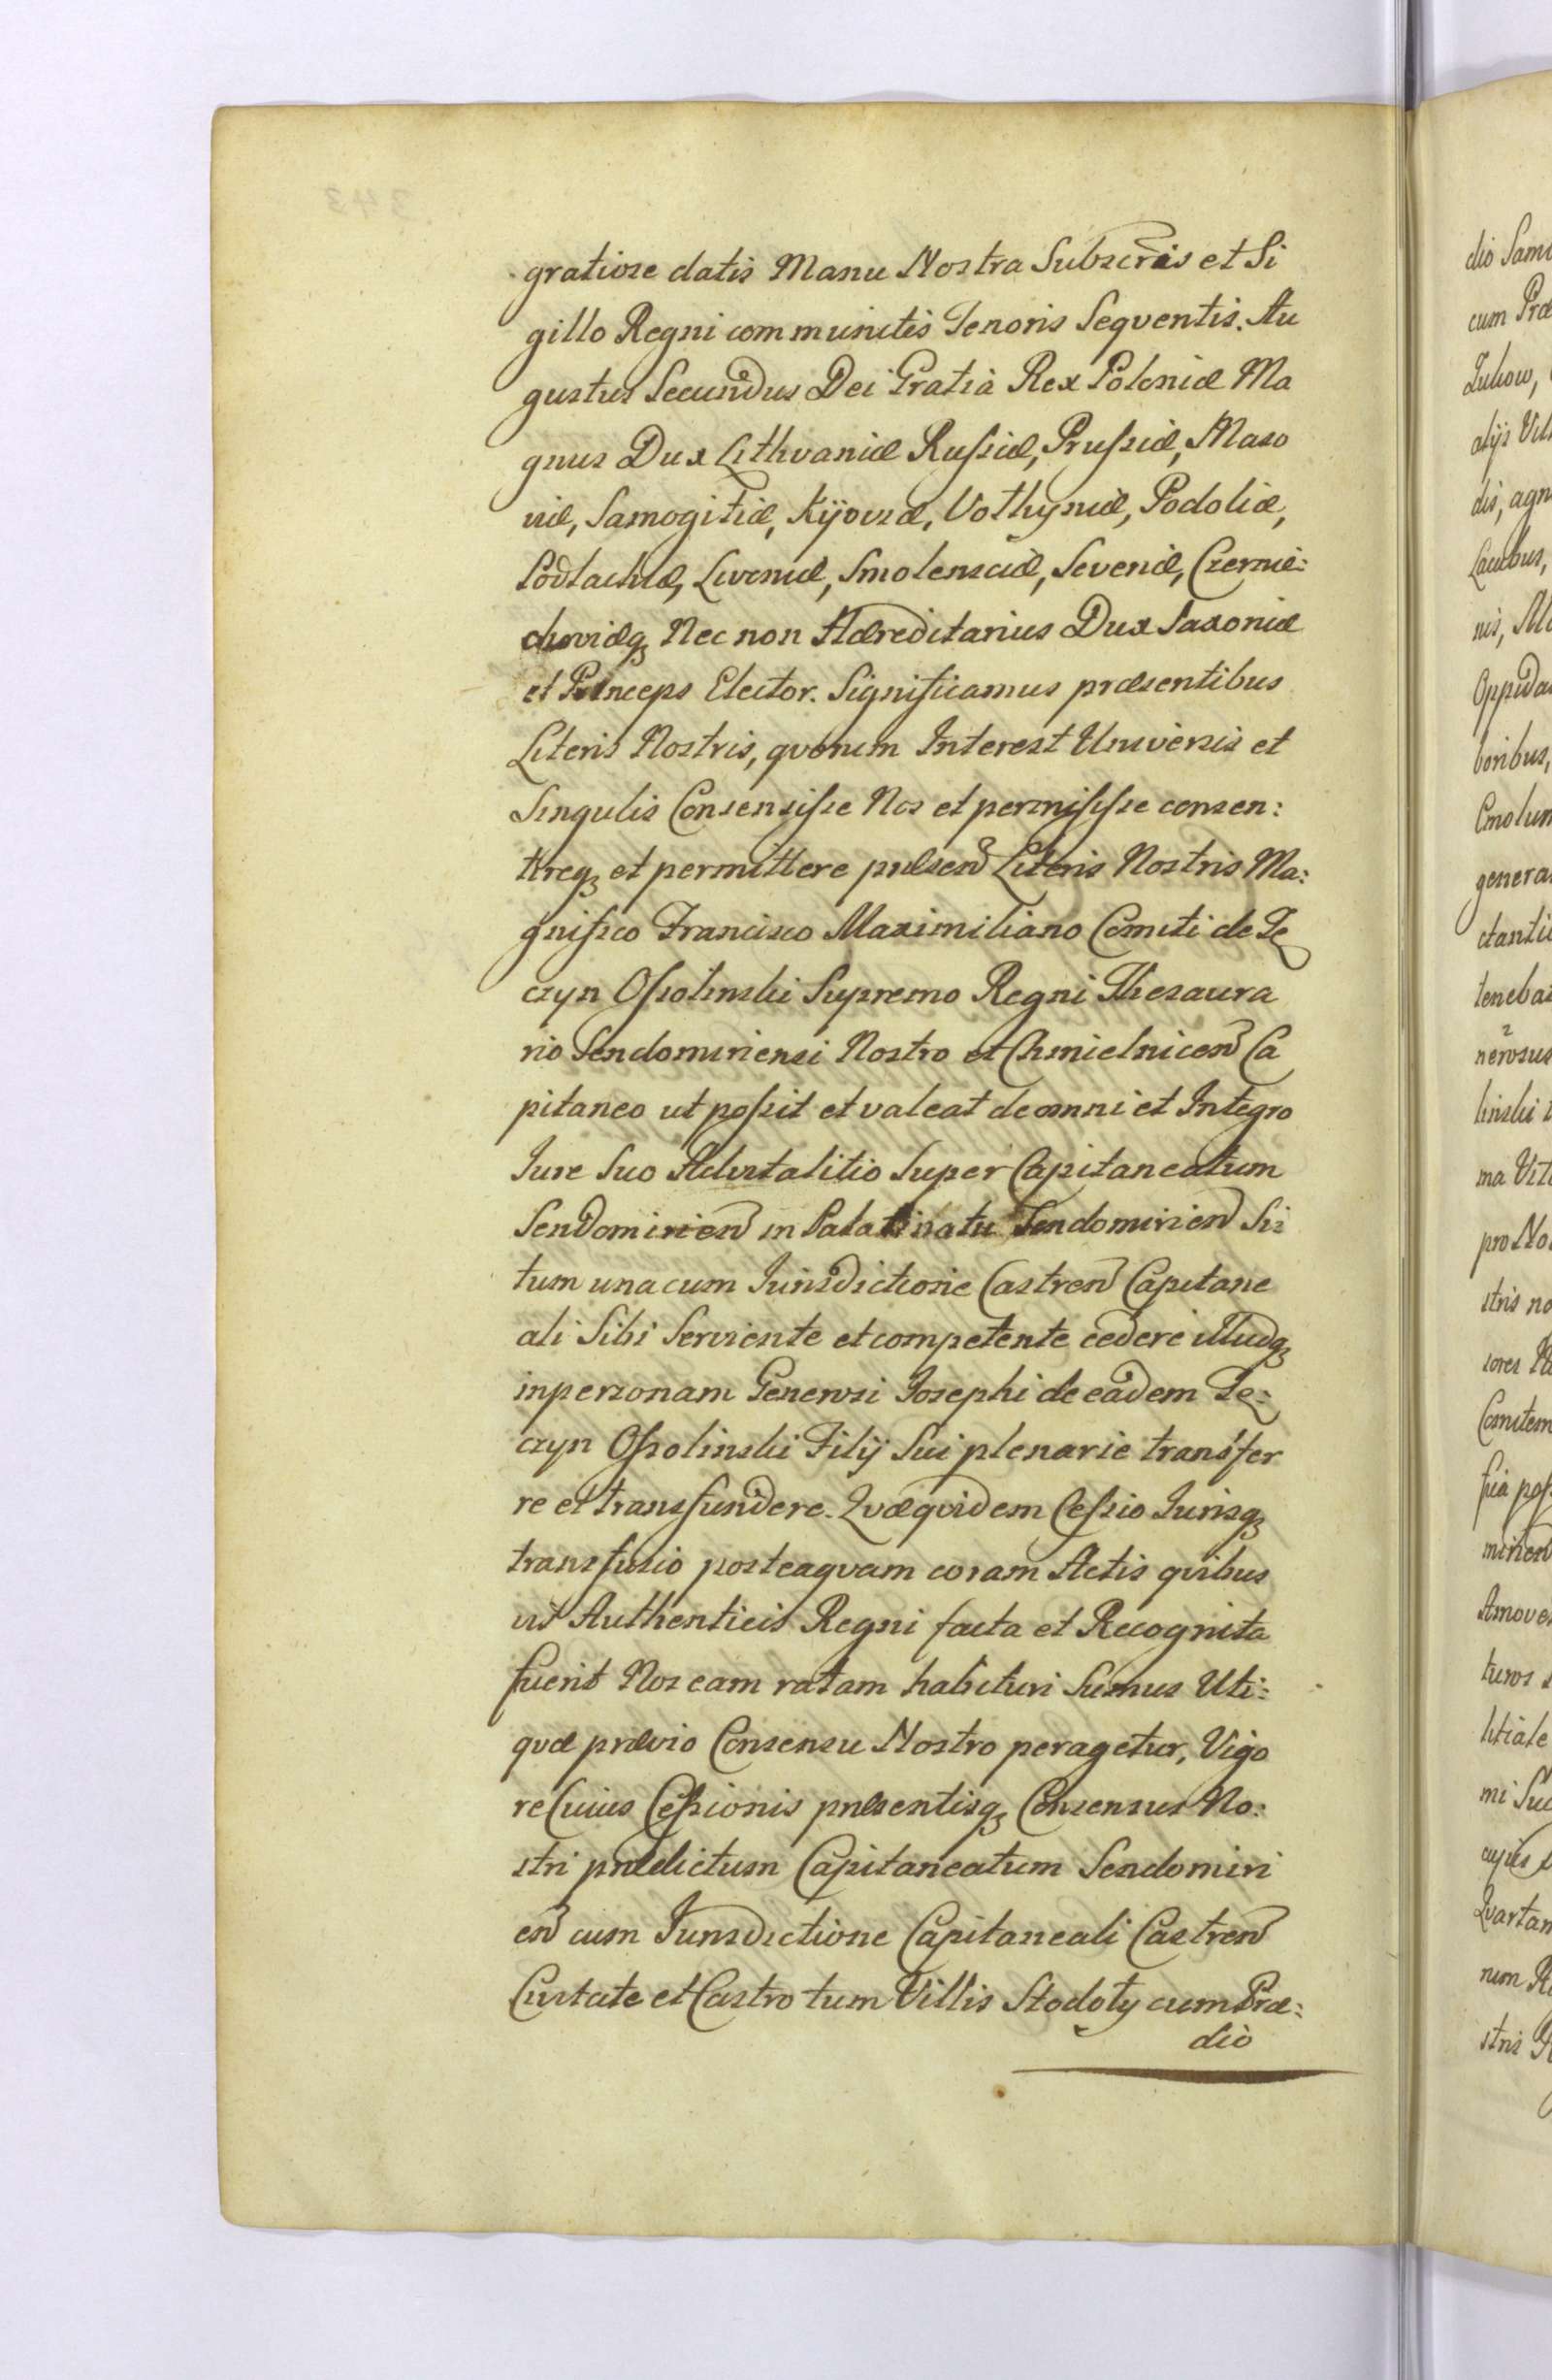 gratiose datis Manu Nostra Subscris et Si
gillo Regni communitis Tenoris Seqventis. Au
gustus Secundus Dei Gratia Rex Poloniæ Ma
gnus Dux Lithvaniæ Russiæ, Prussiæ, Maso
viæ, Samogitiæ, Kijoviæ, Vołhyniæ, Podoliæ,
Podlachiæ, Livoniæ, Smolensciæ, Severiæ, Czernie:
choviæq, Nec non Hæreditarius Dux Saxoniæ
et Princeps Elector. Significamus præsentibus
Literis Nostris, qvorum Interest Universis et
Singulis Consensisse Nos et permisisse consen:
tireq, et permittere pnlsen Literis Nostris Ma:
gnifico Francisco Maximiliano Comiti de Tę
czyn Ossolinski Supremo Regni Thesaura
rio Sendomiriensi Nostro et Chmielnicen Ca
pitaneo ut possit et valeat de omni et Integro
Iure Suo Advitalitio Super Capitaneatum
Sendomirien in Palatinatu Sendomirien Si:
tum una cum Iurisdictione Castren Capitane
ali Sibi Serviente et competente cedere illudq,
in personam Generosi Josephi de eadem Tę:
czyn Ossolinski Filij Sui plenarie transfer
re et transfundere. Qvæqvidem Cessio Iurisq,
transfusio posteaqvam coram Actis qvibus
vis Authenticis Regni facta et Recognita
fuerit Nos eam ratam habituri Sumus Uti:
qvæ prævio Consensu Nostro peragetur, Vigo
re Cuius Cessionis pnlsentisq, Consensus No:
stri prædictum Capitaneatum Sendomiri
en cum Jurisdictione Capitaneali Castren
Civitate et Castro tum Villis Stodoły cum Præ:
dio